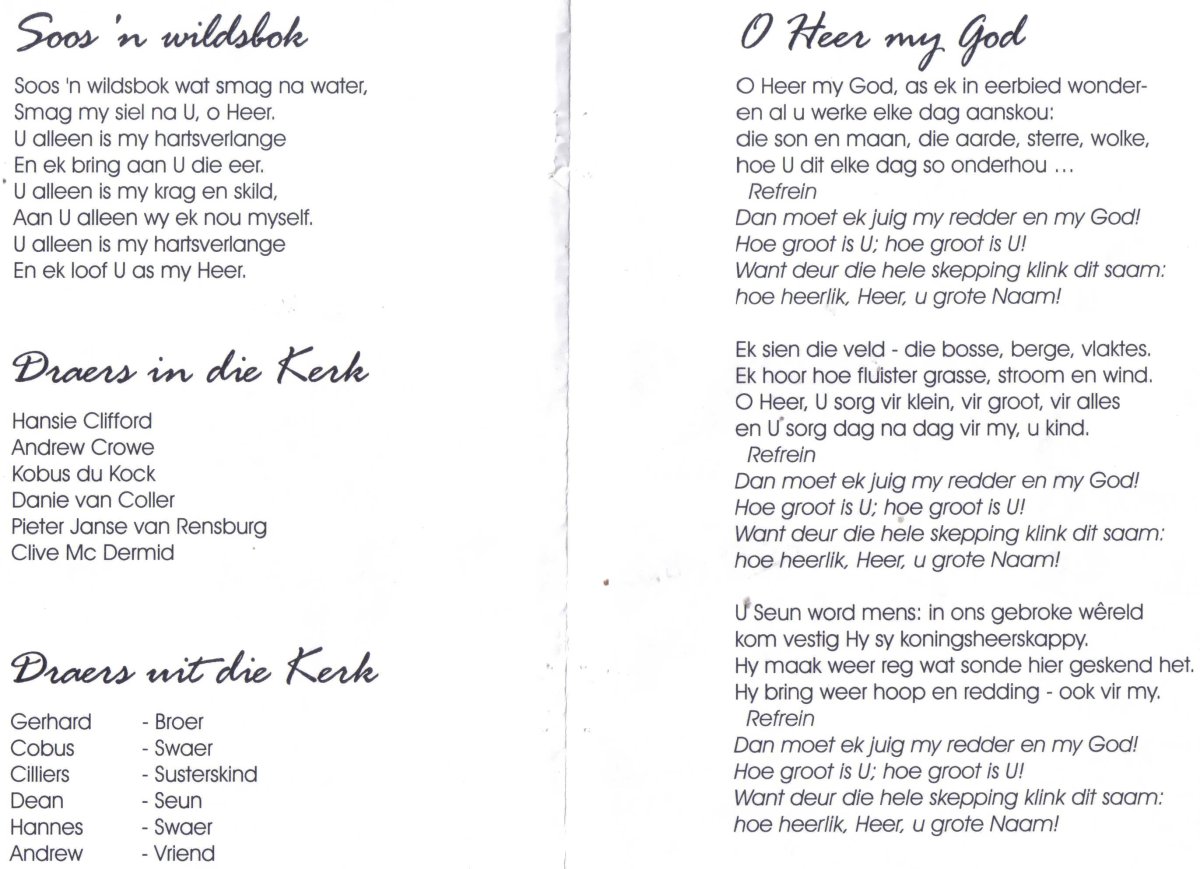 Soos 'n wildsbok
Soos 'n wildsbok wat smag na water,
Smag my siel na U, o Heer.
U alleen is my hartsverlange
En ek bring aan U die eer.
U alleen is my krag en skild,
Aan U alleen wy ek nou myself.
U alleen is my hartsverlange
En ek loof U as my Heer.
Draers in die Kerk
Hansie Clifford
Andrew Crowe
Kobus du Kock
Danie van Coller
Pieter Janse van Rensburg
Clive Mc Dermid
Draers uit die Kerk
Gerhard - Broer
Cobus - Swaer
Cilliers - Susterskind
Dean - Seun
Hannes - Swaer
Andrew - Vriend
O Heer my God
O Heer my God, as ek in eerbied wonder-
en al u werke elke dag aanskou:
die son en maan, die aarde, sterre, wolke,
hoe U dit elke dag so onderhou ...
Refrein
Dan moet ek juig my redder en my God!
Hoe groot is U; hoe groot is U!
Want deur die hele skepping klink dit saam:
hoe heerlik, Heer, u grote Naam!
Ek sien die veld - die bosse, berge, vlaktes.
Ek hoor hoe fluister grasse, stroom en wind.
O Heer, U sorg vir klein, vir groot, vir alles
en U sorg dag na dag vir my, u kind.
Refrein
Dan moet ek juig my redder en my God!
Hoe groot is U; hoe groot is U!
Want deur die hele skepping klink dit saam:
hoe heerlik, Heer, u grote Naam!
U Seun word mens: in ons gebroke wêreld
kom vestig Hy sy koningsheerskappy.
Hy maak weer reg wat sonde hier geskend het.
Hy bring weer hoop en redding - ook vir my.
Refrein
Dan moet ek juig my redder en my God!
Hoe groot is U; hoe groot is U!
Want deur die hele skepping klink dit saam:
hoe heerlik, Heer, u grote Naam!